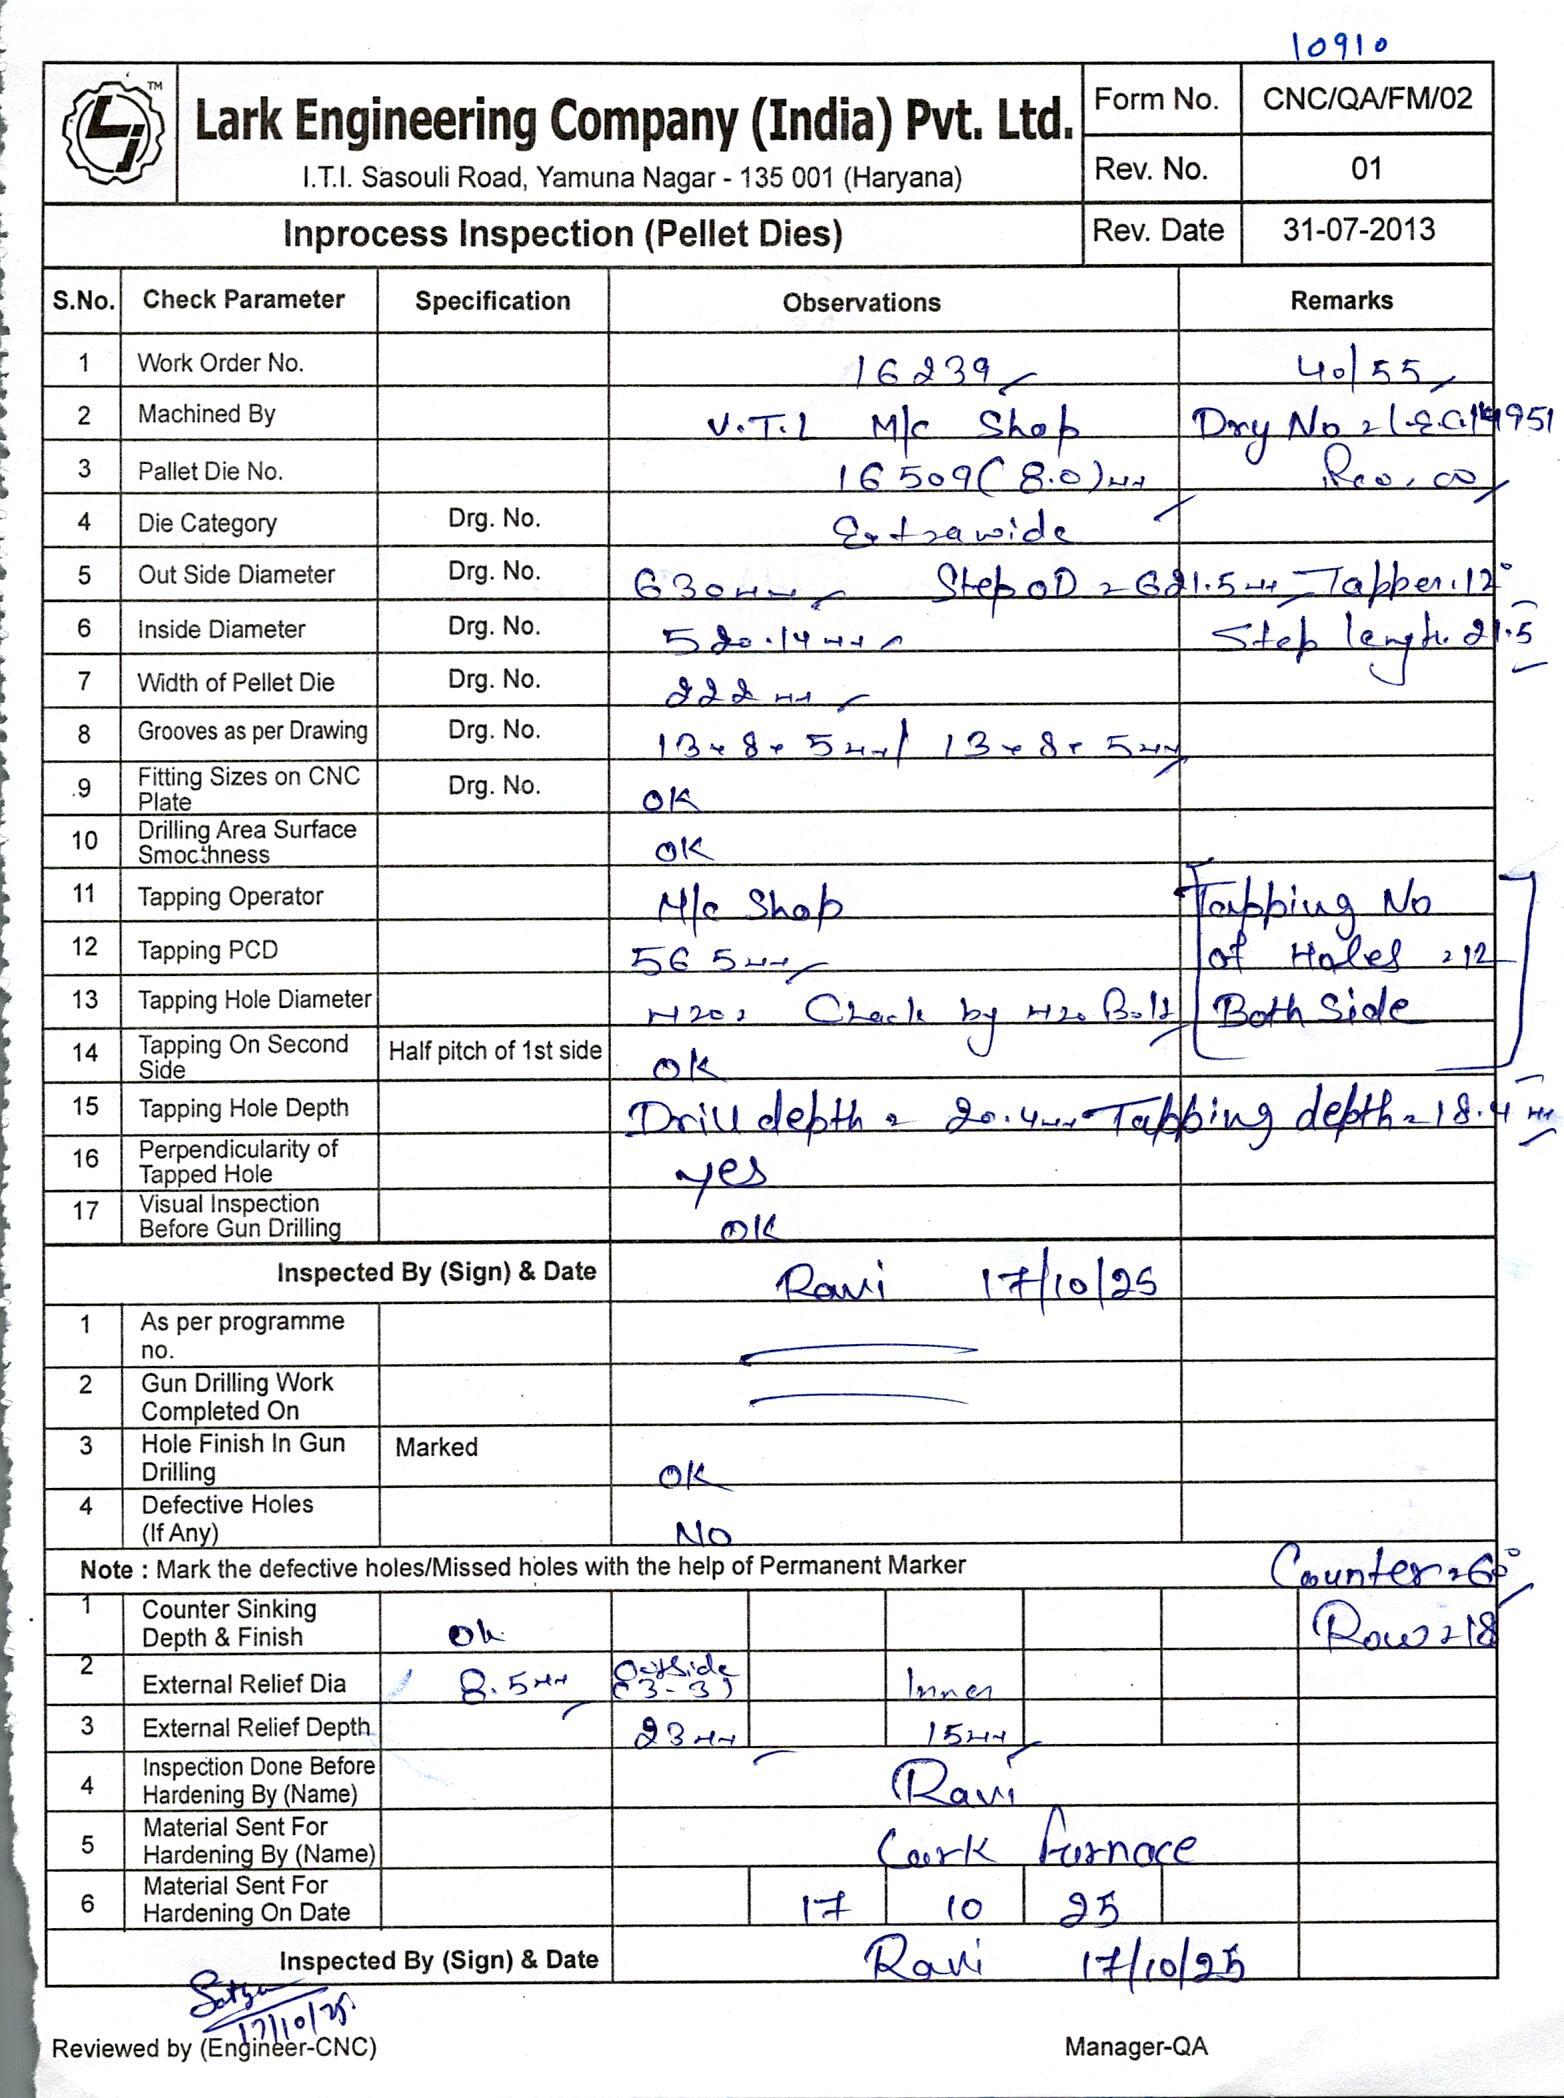 10910
TM
Lark Engineering Company (India) Pvt. Ltd.
I.T.I. Sasouli Road, Yamuna Nagar - 135 001 (Haryana)
Form No. CNC/QA/FM/02
Rev. No. 01
Inprocess Inspection (Pellet Dies) Rev. Date 31-07-2013
S.No. Check Parameter Specification Observations Remarks
1 Work Order No. 16239 40/55
2 Machined By V.T.L M/c Shop Drg No
3 Pallet Die No. 16509 (8.0)mm
4 Die Category Drg. No. Extrawide
5 Out Side Diameter Drg. No. 630mm Step OD = 621.5mm Tapper. 12°
6 Inside Diameter Drg. No. 520.14mm Step length. 21.5
7 Width of Pellet Die Drg. No. 222mm
8 Grooves as per Drawing Drg. No. 13x8x5mm/ 13x8x5mm
9 Fitting Sizes on CNC Plate Drg. No. OK
10 Drilling Area Surface Smoothness OK
11 Tapping Operator M/c Shop Tapping No
12 Tapping PCD 565mm of Holes = 12
13 Tapping Hole Diameter M20 = Check by M20 Bolt Both Side
14 Tapping On Second Side Half pitch of 1st side OK
15 Tapping Hole Depth Drill depth = 20.4mm Tapping depth = 18.4mm
16 Perpendicularity of Tapped Hole yes
17 Visual Inspection Before Gun Drilling OK
Inspected By (Sign) & Date Ravi 17/10/25
1 As per programme no.
2 Gun Drilling Work Completed On
3 Hole Finish In Gun Drilling Marked OK
4 Defective Holes (If Any) NO
Note : Mark the defective holes/Missed holes with the help of Permanent Marker Counter = 60°
1 Counter Sinking Depth & Finish Ok Row = 18
2 External Relief Dia 8.5mm Outside (3-3) Inner
3 External Relief Depth 23mm 15mm
4 Inspection Done Before Hardening By (Name) Ravi
5 Material Sent For Hardening By (Name) Lark furnace
6 Material Sent For Hardening On Date 17 10 25
Inspected By (Sign) & Date Ravi 17/10/25
17/10/25
Reviewed by (Engineer-CNC) Manager-QA